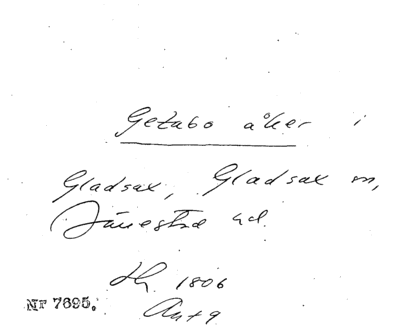 Getabo åker i
Gladsax, Gladsax sn,
Järrestad hd.
1806
NF 7695.